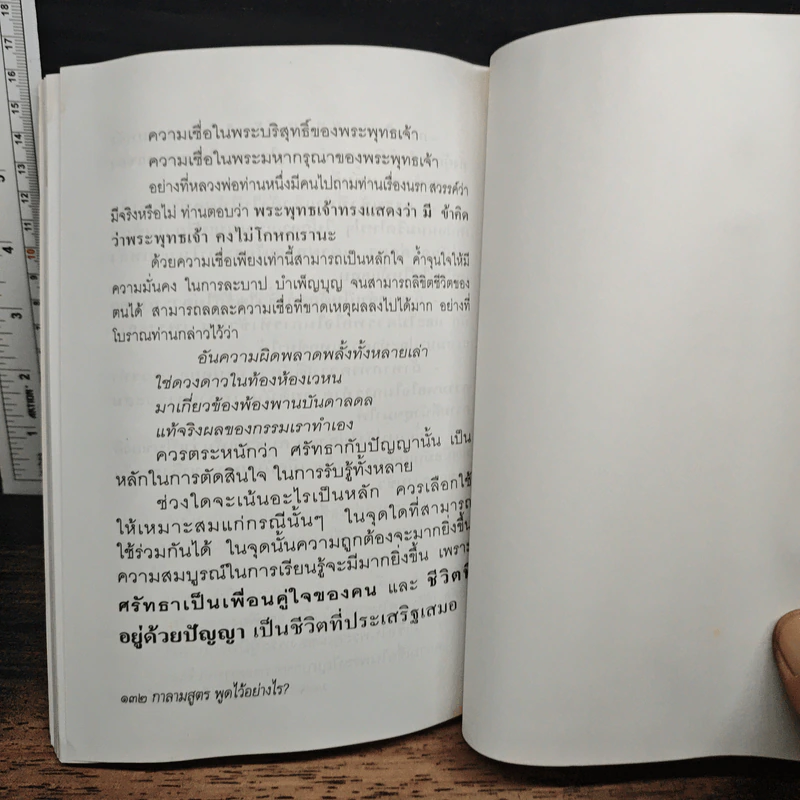 ความเชื่อในพระบริสุทธิ์ของพระพุทธเจ้า
ความเชื่อในพระมหากรุณาของพระพุทธเจ้า
อย่างที่หลวงพ่อท่านหนึ่งมีคนไปถามท่านเรื่องนรก สวรรค์ว่า
มีจริงหรือไม่ ท่านตอบว่า พระพุทธเจ้าทรงแสดงว่า มี ข้าคิด
ว่าพระพุทธเจ้า คงไม่โกหกเรานะ
ด้วยความเชื่อเพียงเท่านี้สามารถเป็นหลักใจ ค้ำจุนใจให้มี
ความมั่นคง ในการละบาป บำเพ็ญบุญ จนสามารถลิขิตชีวิตของ
ตนได้ สามารถลดละความเชื่อที่ขาดเหตุผลลงไปได้มาก อย่างที่
โบราณท่านกล่าวไว้ว่า
อันความผิดพลาดพลั้งทั้งหลายเล่า
ใช่ดวงดาวในท้องห้องเวหน
มาเกี่ยวข้องพ้องพานบันดาลดล
แท้จริงผลของกรรมเราทำเอง
ควรตระหนักว่า ศรัทธากับปัญญานั้น เป็น
หลักในการตัดสินใจ ในการรับรู้ทั้งหลาย
ช่วงใดจะเน้นอะไรเป็นหลัก ควรเลือกใช้
ให้เหมาะสมแก่กรณีนั้นๆ ในจุดใดที่สามารถ
ใช้ร่วมกันได้ ในจุดนั้นความถูกต้องจะมากยิ่งขึ้น
ความสมบูรณ์ในการเรียนรู้จะมีมากยิ่งขึ้น เพราะ
ศรัทธาเป็นเพื่อนคู่ใจของคน และ ชีวิตที่
อยู่ด้วยปัญญา เป็นชีวิตที่ประเสริฐเสมอ
๑๓๒ กาลามสูตร พูดไว้อย่างไร?